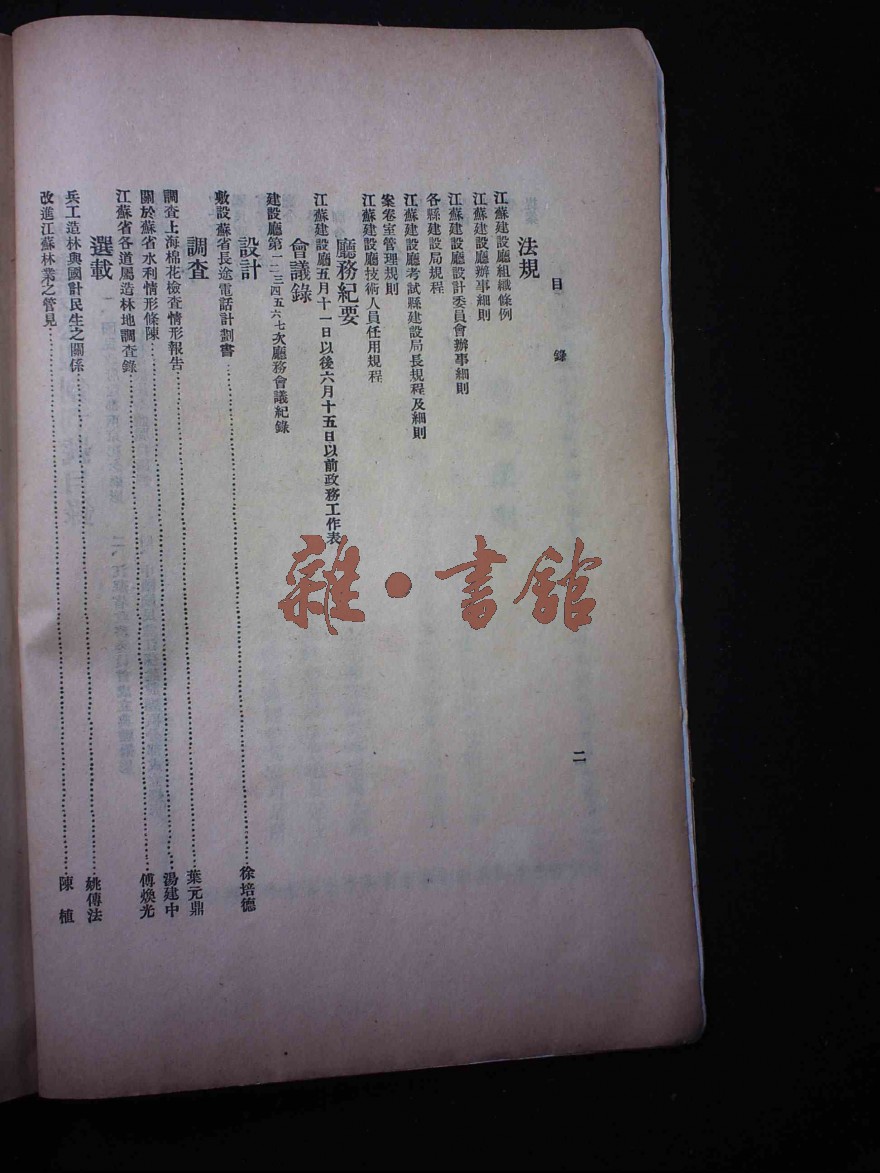 目 錄
二
法規
江蘇建設廳組織條例
江蘇建設廳辦事細則
江蘇建設廳設計委員會辦事細則
各縣建設局規程
江蘇建設廳考試縣建設局長規程及細則
案卷室管理規則
江蘇建設廳技術人員任用規程
廳務紀要
江蘇建設廳五月十一日以後六月十五日以前政務工作表
會議錄
建設廳第一二三四五六七次廳務會議紀錄
設計
敷設蘇省長途電話計劃書……徐培德
調查
調查上海棉花檢查情形報告……葉元鼎
關於蘇省水利情形條陳……湯建中
江蘇省各道屬造林地調查錄……傅煥光
選載
兵工造林與國計民生之關係……姚傳法
改進江蘇林業之管見……陳 植
雜·書館